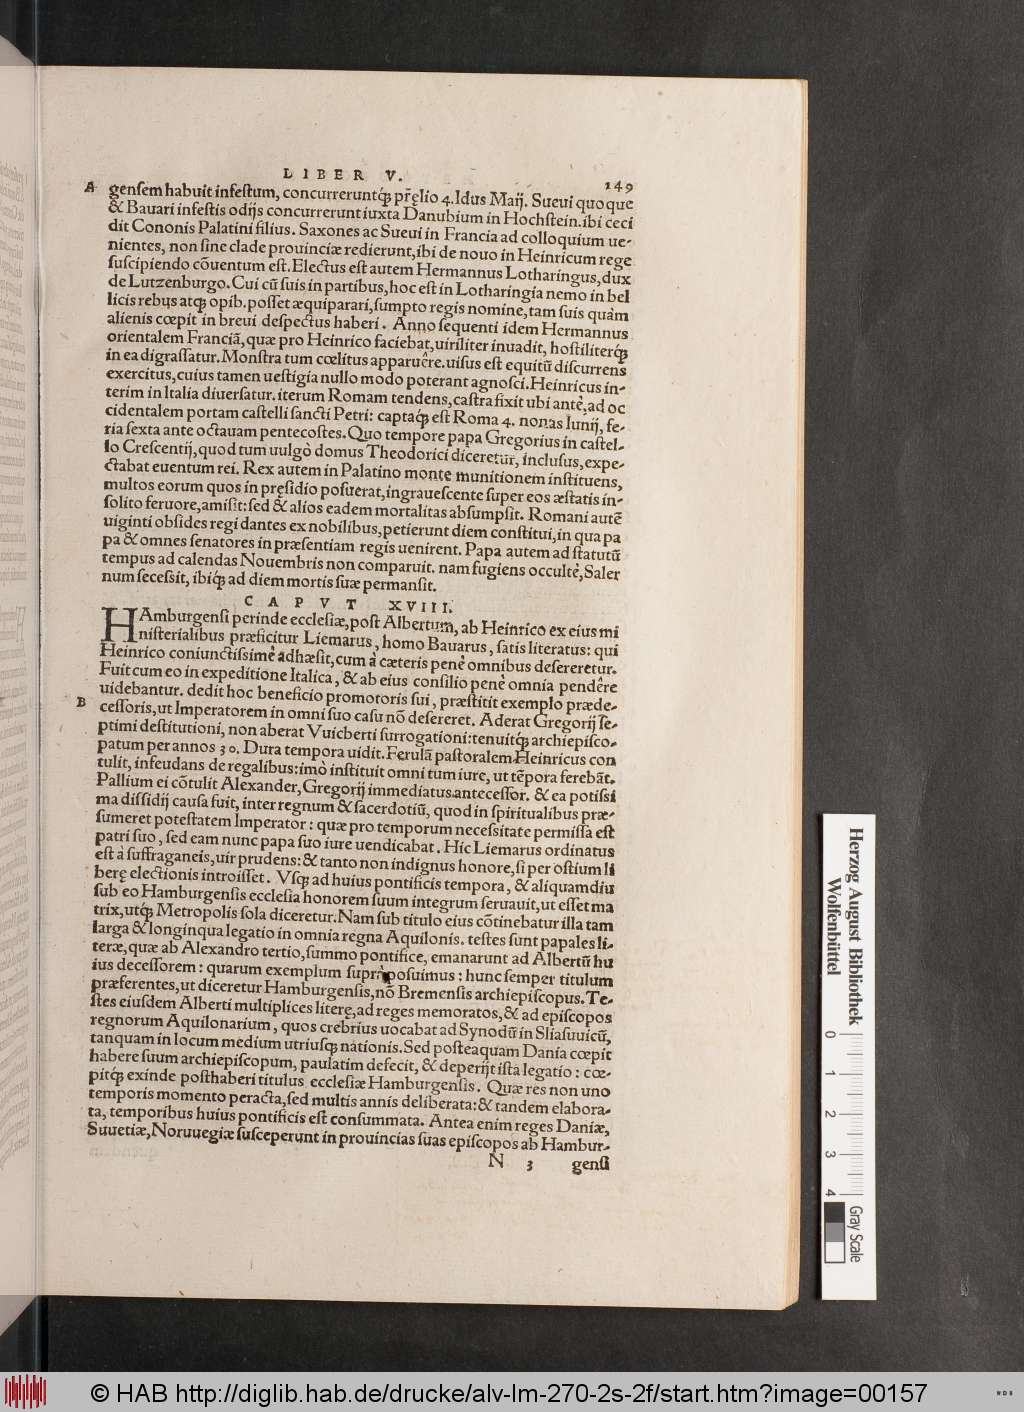 LIBER V. 149
A genſem habuit infeſtum, concurreruntq́ꝫ pr̃ęlio 4. Idus Maij. Sueui quoque
& Bauari infeſtis odijs concurrerunt iuxta Danubium in Hochſtein. ibi ceci
dit Cononis Palatini filius. Saxones ac Sueui in Francia ad colloquium ue-
nientes, non ſine clade prouinciæ redierunt, ibi de nouo in Heinricum rege
ſuſcipiendo cõuentum eſt. Electus eſt autem Hermannus Lotharingus, dux
de Lutzenburgo. Cui cũ ſuis in partibus, hoc eſt in Lotharingia nemo in bel
licis rebus atqꝫ opib. poſſet æquiparari, ſumpto regis nomine, tam ſuis quàm
alienis cœpit in breui deſpectus haberi. Anno ſequenti idem Hermannus
orientalem Franciã, quæ pro Heinrico faciebat, uiriliter inuadit, hoſtiliterq́ꝫ
in ea digraſſatur. Monſtra tum cœlitus apparuêre. uiſus eſt equitũ diſcurrens
exercitus, cuius tamen ueſtigia nullo modo poterant agnoſci. Heinricus in-
terim in Italia diuerſatur. iterum Romam tendens, caſtra fixit ubi antè, ad oc
cidentalem portam caſtelli ſancti Petri: captaq́ꝫ eſt Roma 4. nonas Iunij, fe-
ria ſexta ante octauam pentecoſtes. Quo tempore papa Gregorius in caſtel-
lo Creſcentij, quod tum uulgò domus Theodorici diceretur, incluſus, expe-
ctabat euentum rei. Rex autem in Palatino monte munitionem inſtituens,
multos eorum quos in pręſidio poſuerat, ingraueſcente ſuper eos æſtatis in-
ſolito feruore, amiſit: ſed & alios eadem mortalitas abſumpſit. Romani autẽ
uiginti obſides regi dantes ex nobilibus, petierunt diem conſtitui, in qua pa
pa & omnes ſenatores in præſentiam regis uenirent. Papa autem ad ſtatutũ
tempus ad calendas Nouembris non comparuit. nam fugiens occultè, Saler
num ſeceſsit, ibiq́ꝫ ad diem mortis ſuæ permanſit.
CAPVT XVIII.
HAmburgenſi perinde eccleſiæ, poſt Albertum, ab Heinrico ex eius mi
niſterialibus præficitur Liemarus, homo Bauarus, ſatis literatus: qui
Heinrico coniunctiſsimè adhæſit, cum à cæteris penè omnibus deſereretur.
Fuit cum eo in expeditione Italica, & ab eius conſilio penè omnia pendêre
uidebantur. dedit hoc beneficio promotoris ſui, præſtitit exemplo præde-
B ceſſoris, ut Imperatorem in omni ſuo caſu nõ deſereret. Aderat Gregorij ſe-
ptimi deſtitutioni, non aberat Vuicberti ſurrogationi: tenuitq́ꝫ archiepiſco-
patum per annos 30. Dura tempora uidit. Ferulã paſtoralem Heinricus con
tulit, infeudans de regalibus: imò inſtituit omni tum iure, ut tẽpora ferebãt.
Pallium ei cõtulit Alexander, Gregorij immediatus anteceſſor. & ea potiſsi
ma diſsidij cauſa fuit, inter regnum & ſacerdotiũ, quod in ſpiritualibus præ-
ſumeret poteſtatem Imperator: quæ pro temporum neceſsitate permiſſa eſt
patri ſuo, ſed eam nunc papa ſuo iure uendicabat. Hic Liemarus ordinatus
eſt à ſuffraganeis, uir prudens: & tanto non indignus honore, ſi per oſtium li
berę electionis introiſſet. Vſqꝫ ad huius pontificis tempora, & aliquamdiu
ſub eo Hamburgenſis eccleſia honorem ſuum integrum ſeruauit, ut eſſet ma
trix, utq́ꝫ Metropolis ſola diceretur. Nam ſub titulo eius cõtinebatur illa tam
larga & longinqua legatio in omnia regna Aquilonis. teſtes ſunt papales li-
teræ, quæ ab Alexandro tertio, ſummo pontifice, emanarunt ad Albertũ hu
ius deceſſorem: quarum exemplum ſuprà poſuimus: hunc ſemper titulum
præferentes, ut diceretur Hamburgenſis, nõ Bremenſis archiepiſcopus. Te-
ſtes eiuſdem Alberti multiplices literę, ad reges memoratos, & ad epiſcopos
regnorum Aquilonarium, quos crebrius uocabat ad Synodũ in Sliaſuuicũ,
tanquam in locum medium utriuſqꝫ nationis. Sed poſteaquam Dania cœpit
habere ſuum archiepiſcopum, paulatim defecit, & deperijt iſta legatio: cœ-
pitq́ꝫ exinde poſthaberi titulus eccleſiæ Hamburgenſis. Quæ res non uno
temporis momento peracta, ſed multis annis deliberata: & tandem elabora-
ta, temporibus huius pontificis eſt conſummata. Antea enim reges Daniæ,
Suuetiæ, Noruuegiæ ſuſceperunt in prouincias ſuas epiſcopos ab Hambur-
N 3 genſi
Herzog August Bibliothek
Wolfenbüttel
0 1 2 3 4
Gray Scale
© HAB http://diglib.hab.de/drucke/alv-lm-270-2s-2f/start.htm?image=00157
WDB